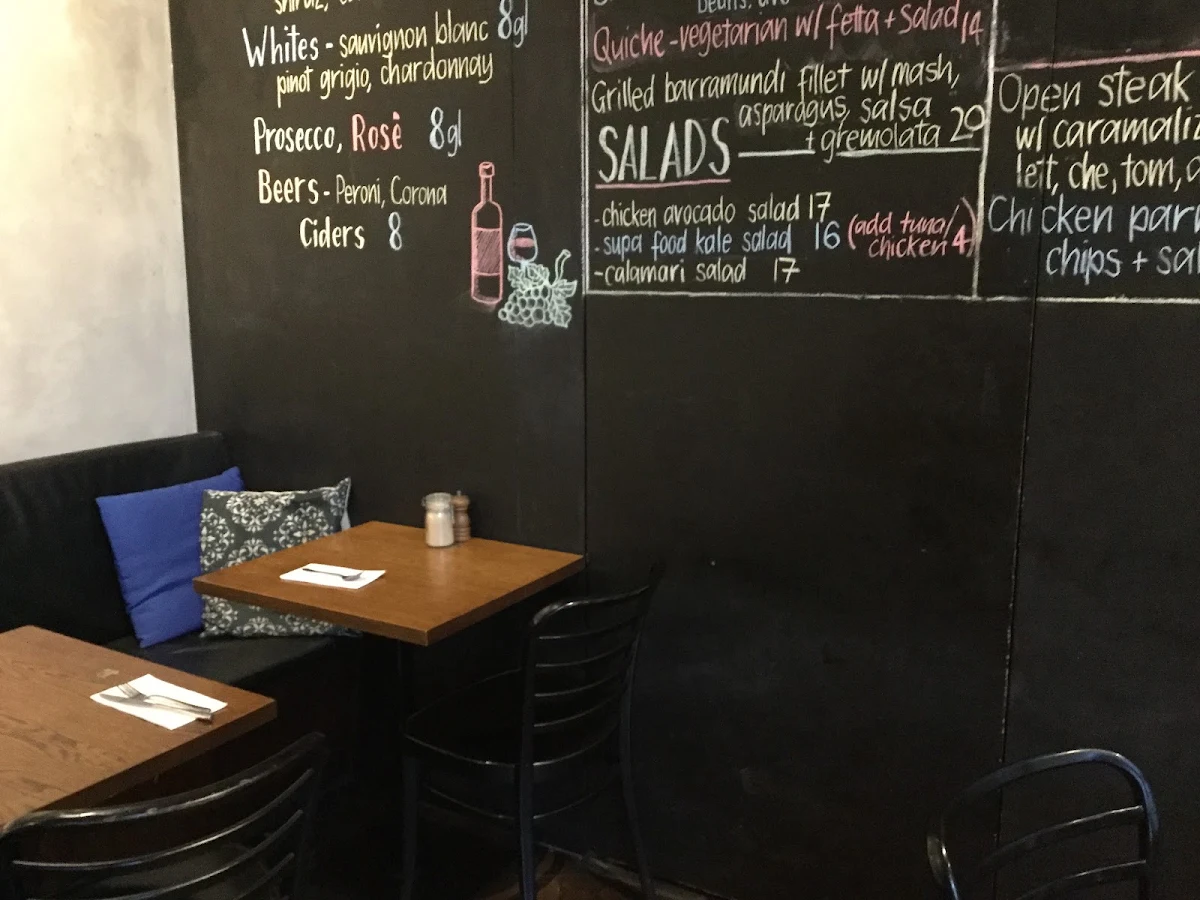 Whites - sauvignon blanc 8gl
pinot grigio, chardonnay
Prosecco, Rosè 8gl
Beers - Peroni, Corona
Ciders 8
Quiche - vegetarian w/ fetta + Salad 14
Grilled barramundi fillet w/ mash,
asparagus, salsa
+ gremolata 20
SALADS
- chicken avocado salad 17
- supa food kale salad 16 (add tuna/
chicken 4)
- calamari salad 17
Open steak
w/ caramaliz
lett, che, tom,
Chicken parm
chips + sal